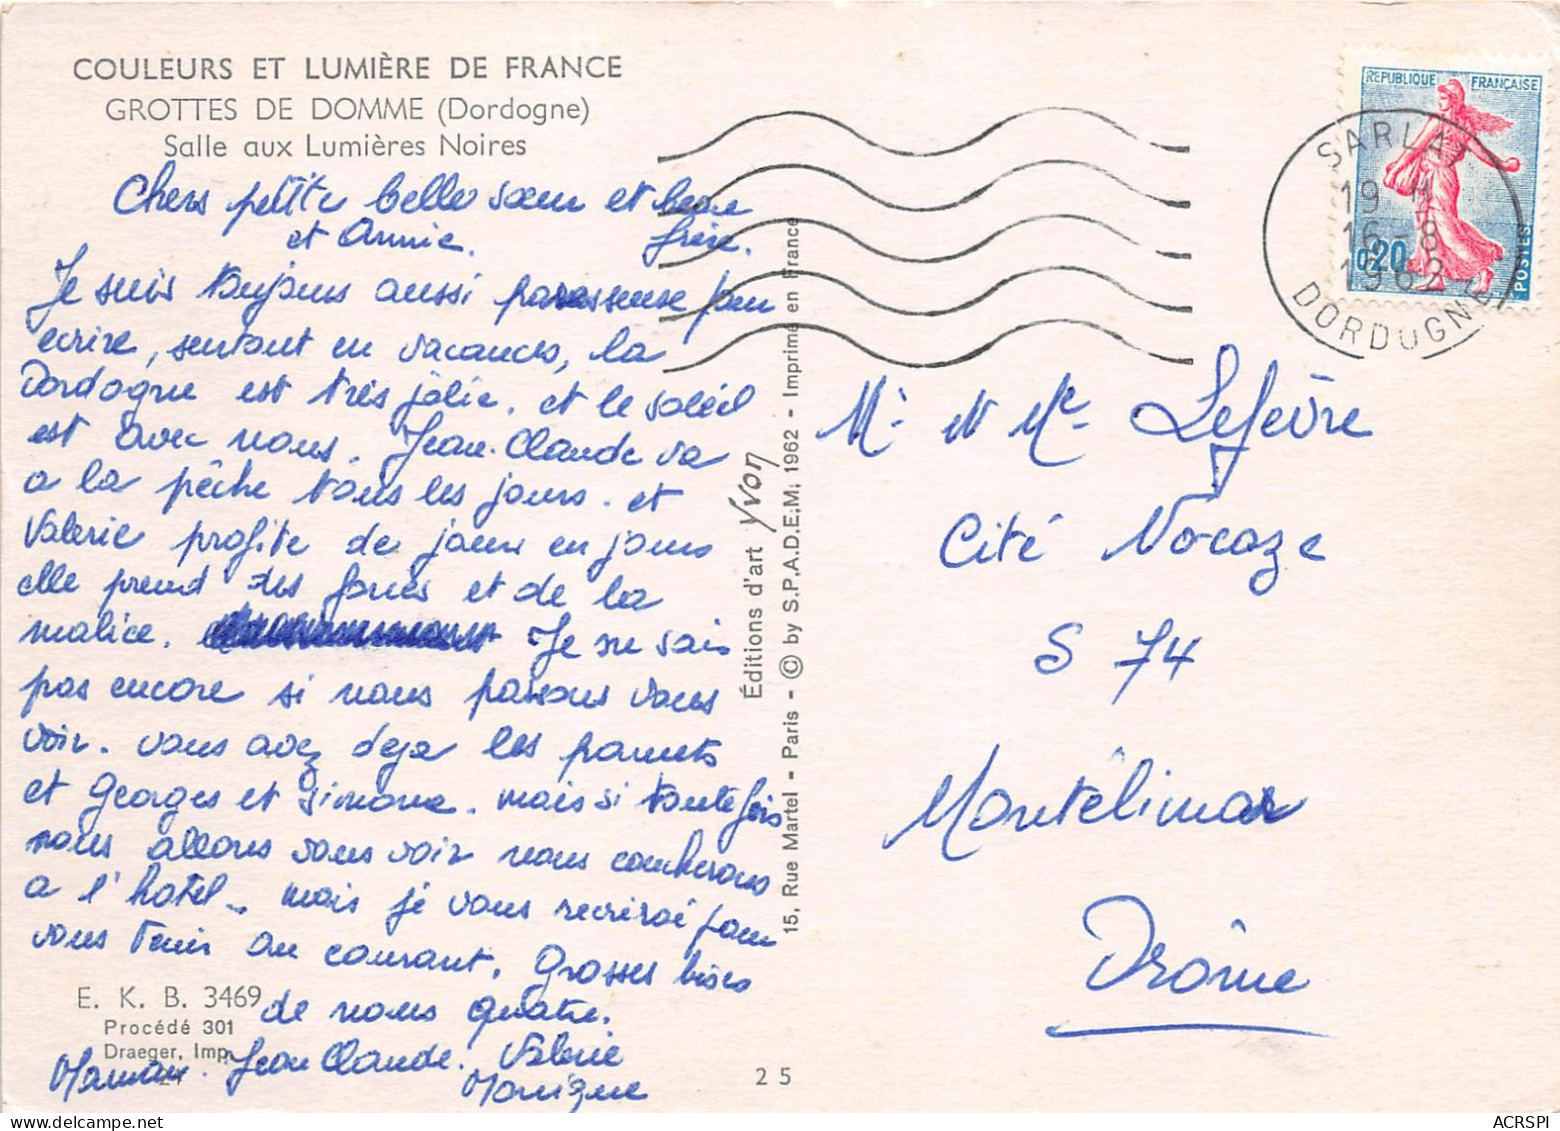 COULEURS ET LUMIÈRE DE FRANCE
GROTTES DE DOMME (Dordogne)
Salle aux Lumières Noires
Chers petite belle sœur et beau
frère.
et Annie.
Je suis toujours aussi paresseuse pour
ecrire, surtout en vacances, la
Dordogne est très jolie. et le soleil
est avec nous. Jean-Claude va
a la pêche tous les jours. et
Valerie profite de jours en jours
elle prend des joues et de la
malice. Je ne sais
pas encore si nous passons vous
voir. vous avez deja les parents
et Georges et Simone. mais si toutefois
nous allons vous voir nous coucherons
a l'hotel. mais je vous recrirai pour
vous tenir au courant. Grosses bises
de nous quatre.
Maman. Jean Claude. Valerie
Monique
E. K. B. 3469
Procédé 301
Draeger, Imp.
21
25
Éditions d'art Yvon
15, Rue Martel - Paris - © by S.P.A.D.E.M. 1962 - Imprimé en France
REPUBLIQUE FRANÇAISE
0,20
POSTES
SARLAT
19 H
16 - 8
1962
DORDOGNE
Mr. et Me Lefèvre
Cité Nocaze
S 74
Montélimar
Drôme
ACRSPI